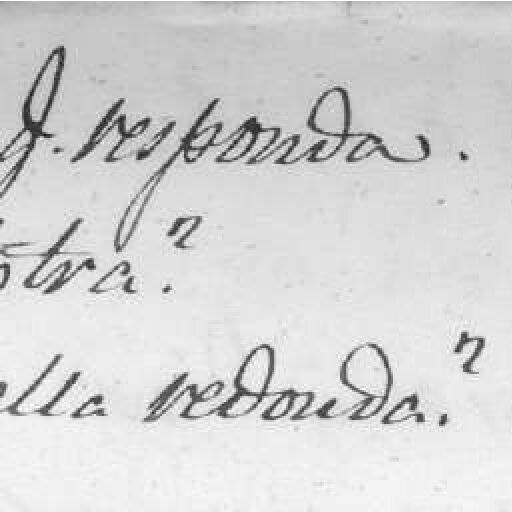 J. responda.
stra.?
ella redonda.?